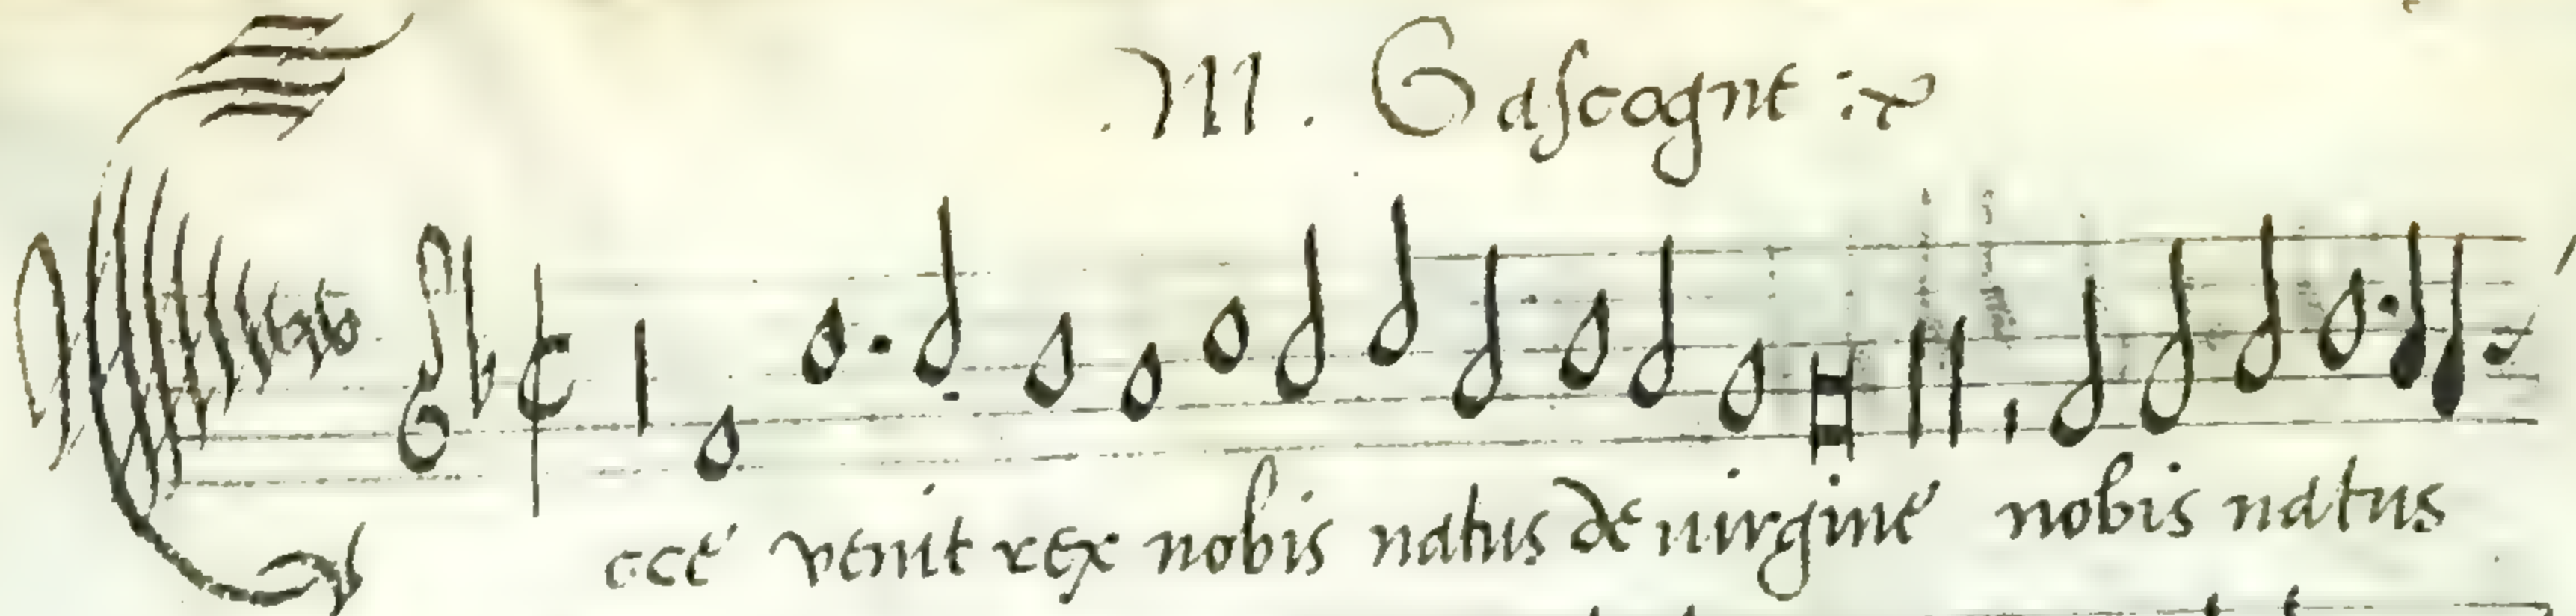 .M. Gascogne
ecce venit rex nobis natus de uirgine nobis natus